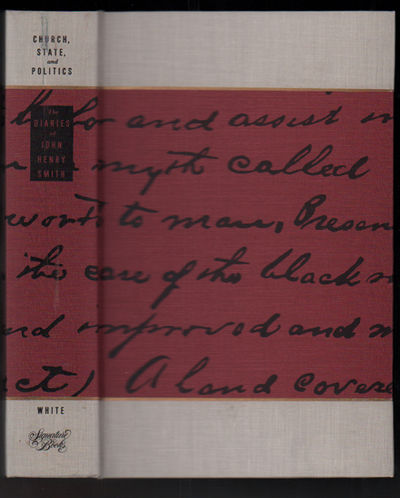 CHURCH,
STATE,
and
POLITICS
The
DIARIES
of
JOHN
HENRY
SMITH
WHITE
Signature
Books
and assist
myth called
to man, Presen
the care of the black
improved and
ct) A land covere